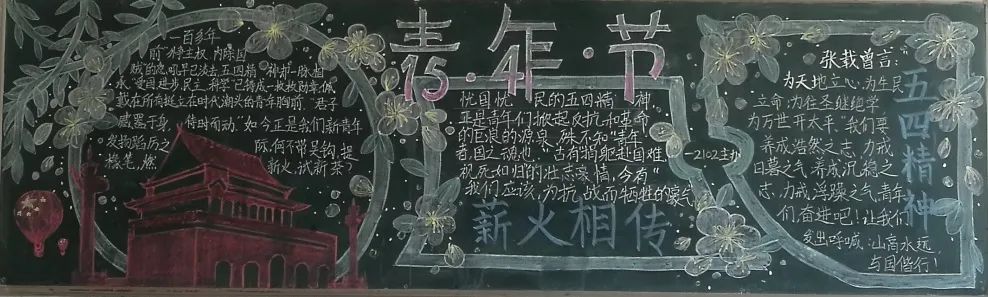 青·年·节
15·4
一百多年
前"外争主权，内除国
贼"的怒吼早已淡去，五四精神却一脉相
承，爱国进步民主科学已铸成一枚枚勋章，佩
戴在所有挺立在时代潮头的青年胸前。"君子
藏器于身，待时而动"如今正是我们新青年
发扬蹈厉之际，何不带吴钩，提
椽笔，燃薪火，试新茶？
忧国忧民的五四精神，
正是青年们掀起反抗和革命
的巨浪的源泉，殊不知"青年
者，国之魂也"，古有犄躯赴国难，
视死如归的壮志豪情，今有"
我们应该为抗战而牺牲的豪气
薪火相传
—2102主办
张载曾言：
为天地立心，为生民
立命，为往圣继绝学
为万世开太平。"我们要
养成浩然之志，力戒
日暮之气，养成沉稳之
志，力戒浮躁之气，青年
们奋进吧！让我们
发出呼喊：山高水远
与国偕行！
五四精神